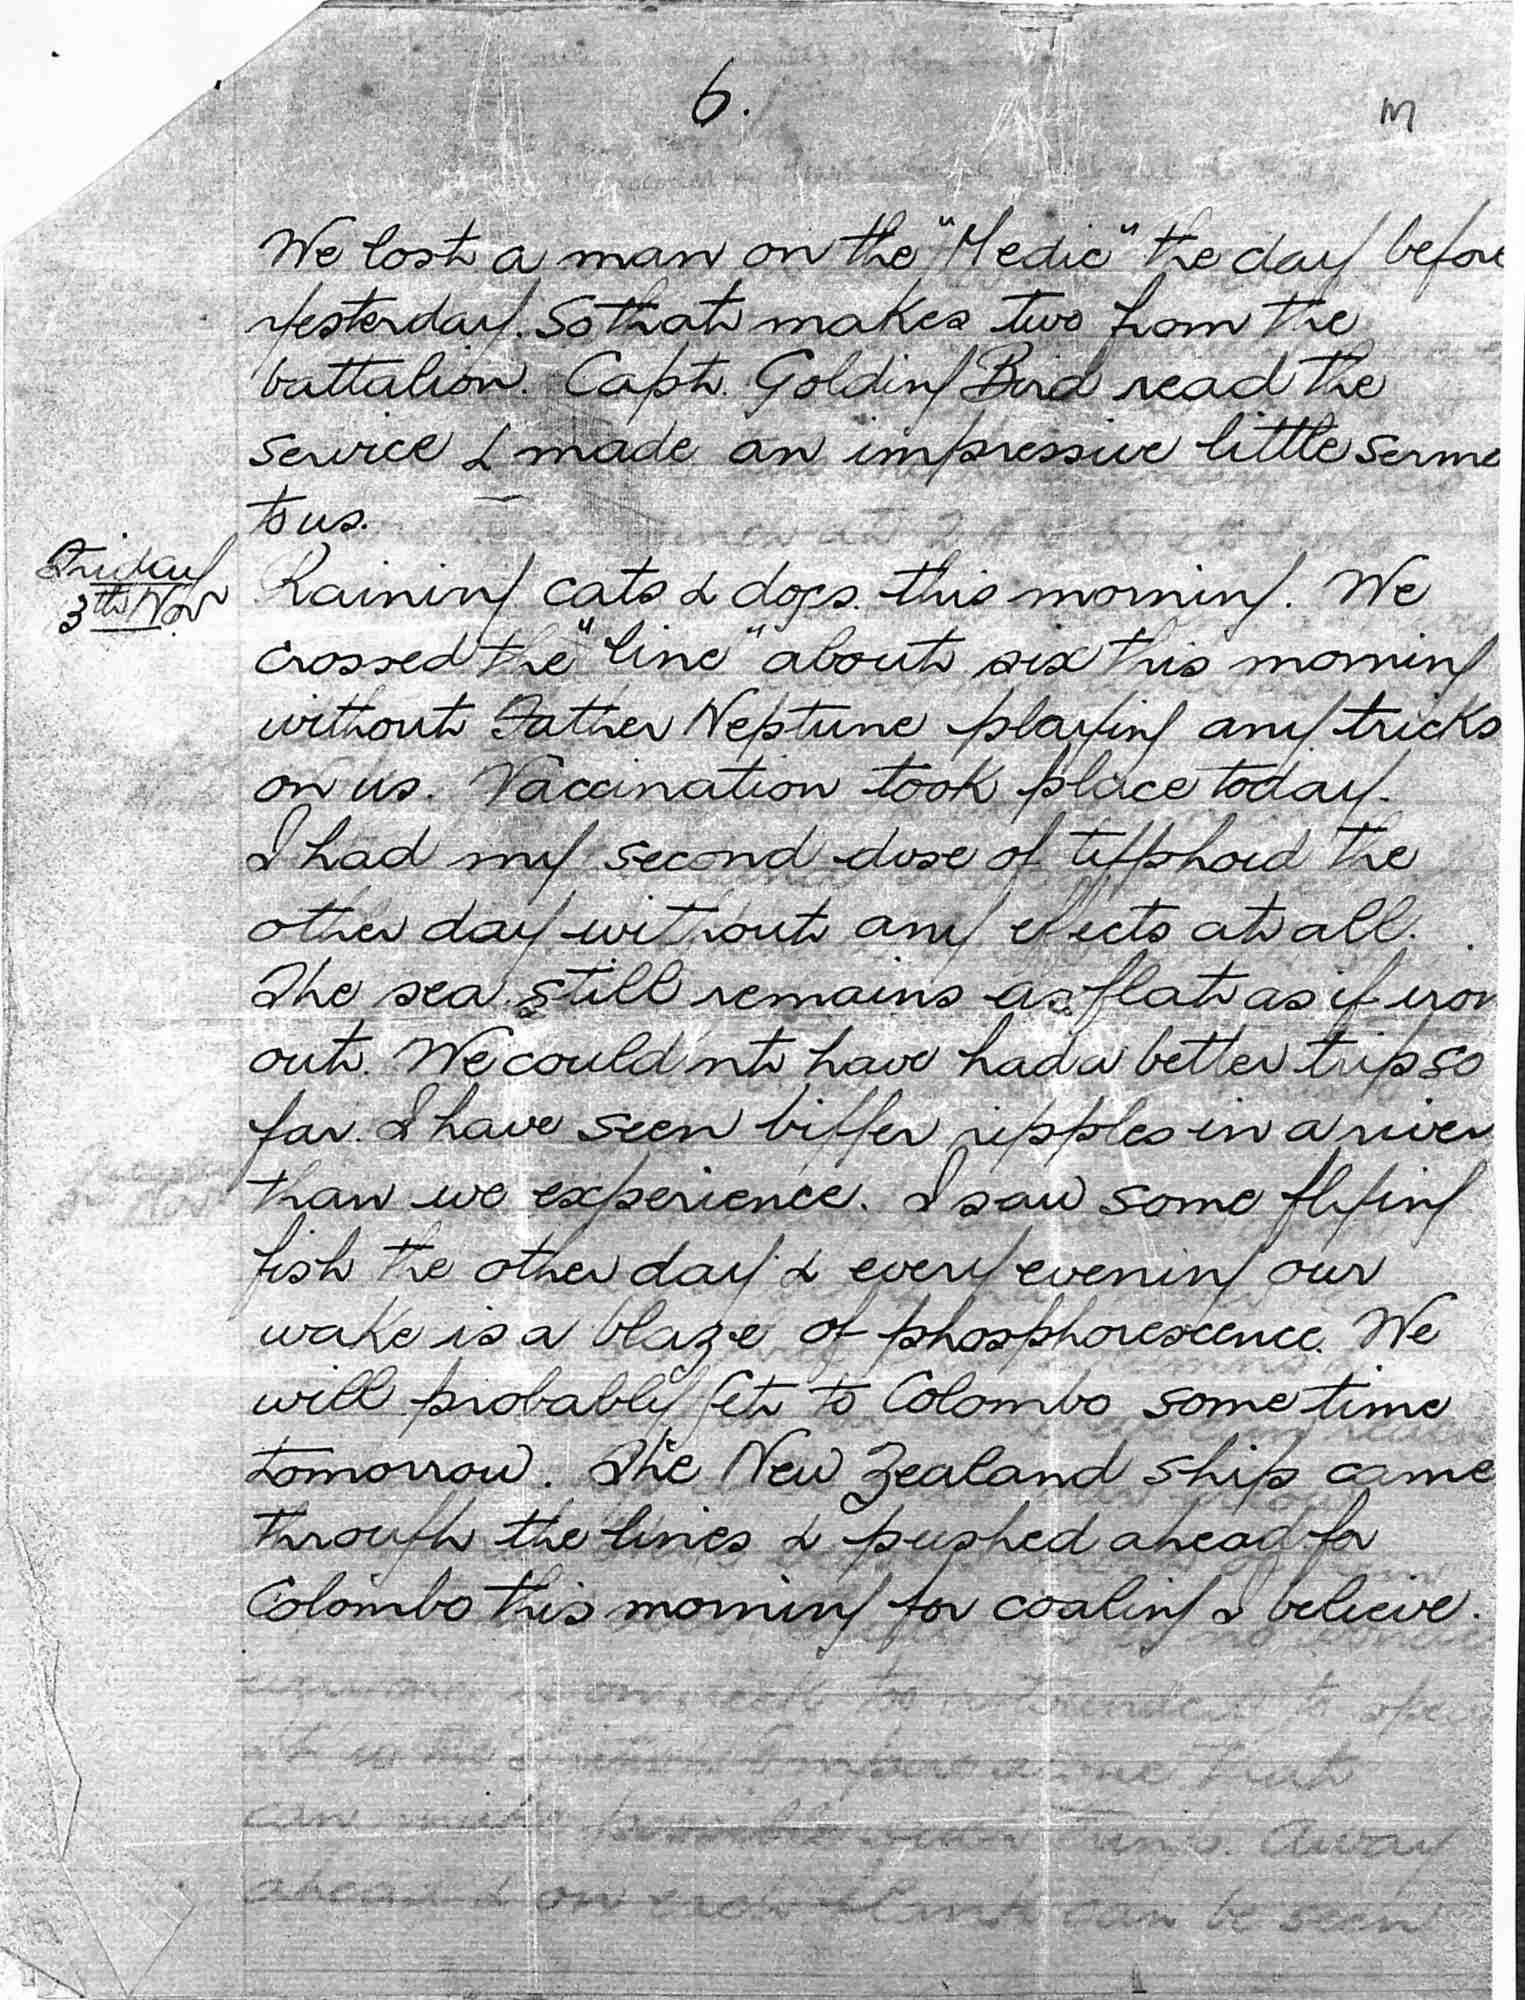 6.
m
We lost a man on the "Medic" the day before
yesterday. So that makes two from the
battalion. Capt. Golding Bird read the
service & made an impressive little sermo
to us.
Friday
3th Nov
Raining cats & dogs this morning. We
crossed the "line" about six this morning
without Father Neptune playing any tricks
on us. Vaccination took place today.
I had my second dose of typhoid the
other day without any effects at all.
The sea still remains as flat as if iron
out. We could'nt have had a better trip so
far. I have seen bigger ripples in a river
than we experience. I saw some flying
fish the other day & every evening our
wake is a blaze of phosphorescence. We
will probably get to Colombo some time
tomorrow. The New Zealand ship came
through the lines & pushed ahead for
Colombo this morning for coaling I believe.
can possible things. Away
ahead & on each flank can be seen